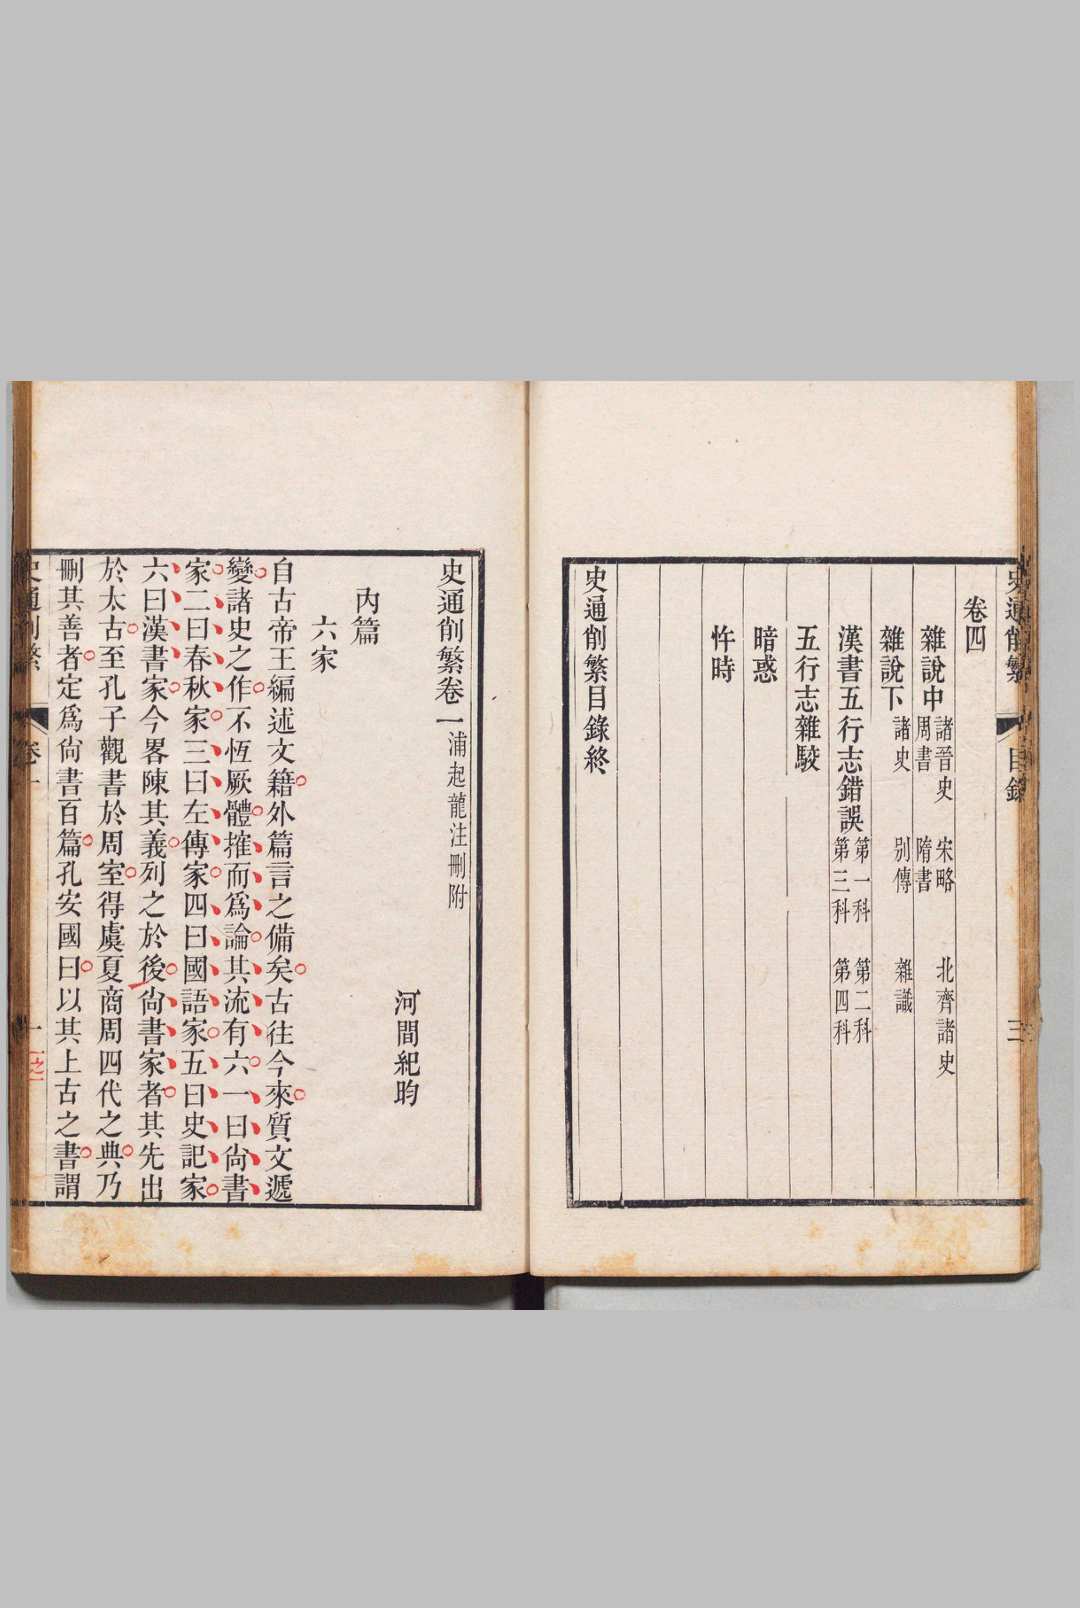 史通削繁 目錄 三
卷四
雜說中 諸晉史 宋略 北齊諸史 周書 隋書
雜說下 諸史 別傳 雜識
漢書五行志錯誤 第一科 第二科 第三科 第四科
五行志雜駁
暗惑
忤時
史通削繁目錄終
史通削繁卷一 浦起龍注刪附
河間紀昀
內篇
六家
自古帝王編述文籍外篇言之備矣古往今來質文遞
變諸史之作不恆厥體搉而爲論其流有六一曰尙書
家二曰春秋家三曰左傳家四曰國語家五曰史記家
六曰漢書家今畧陳其義列之於後尙書家者其先出
於太古至孔子觀書於周室得虞夏商周四代之典乃
刪其善者定爲尙書百篇孔安國曰以其上古之書謂
史通削繁 卷一 一